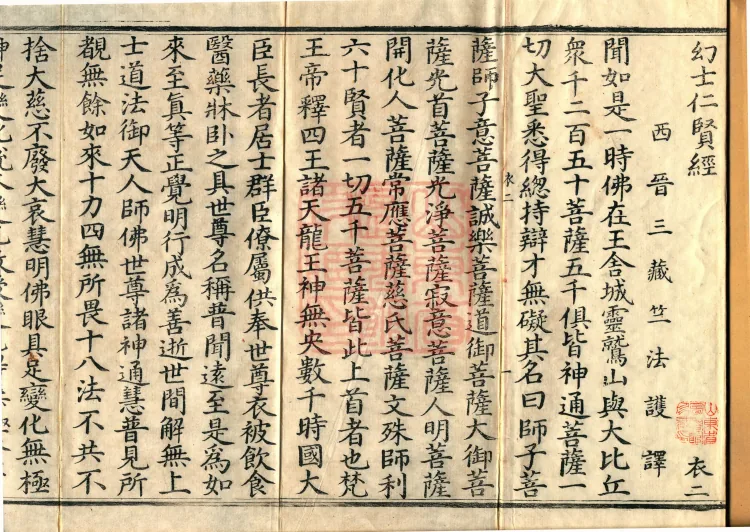 幻士仁賢經
西晉三藏竺法護譯
衣二
聞如是一時佛在王舍城靈鷲山與大比丘
衆千二百五十菩薩五千俱皆神通菩薩一
切大聖悉得總持辯才無礙其名曰師子菩
薩師子意菩薩誠樂菩薩道御菩薩大御菩
衣二
一
薩光首菩薩光淨菩薩寂意菩薩人明菩薩
開化人菩薩常應菩薩慈氏菩薩文殊師利
六十賢者一切五千菩薩皆此上首者也梵
王帝釋四王諸天龍王神無央數千時國大
臣長者居士群臣僚屬供奉世尊衣被飲食
醫藥牀卧之具世尊名稱普聞遠至是爲如
來至眞等正覺明行成爲善逝世間解無上
士道法御天人師佛世尊諸神通慧普見所
覩無餘如來十力四無所畏十八法不共不
捨大慈不廢大哀慧明佛眼具足變化無極